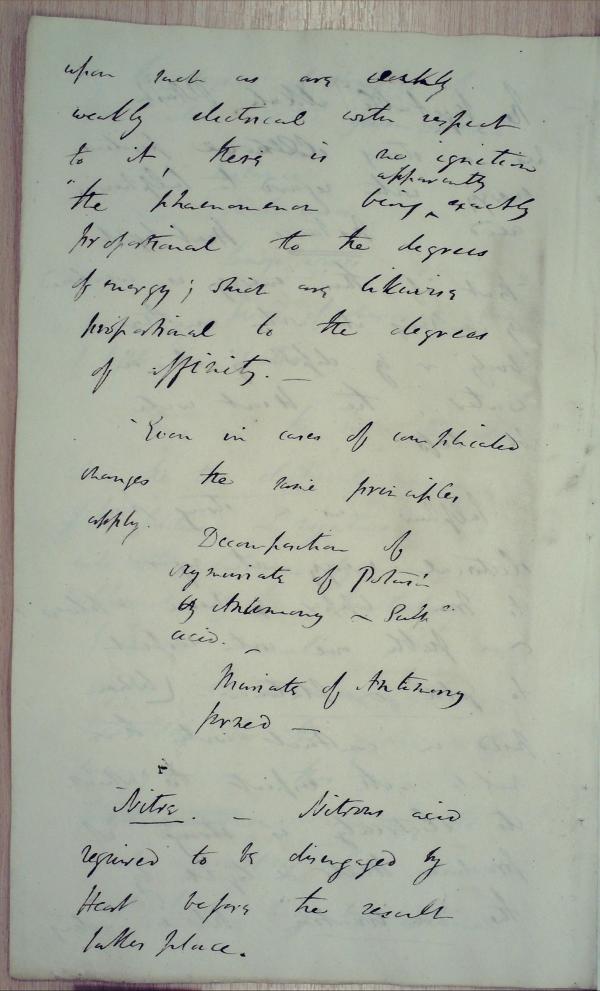 upon such as are weakly
weakly electrical with respect
to it, there is no ignition
apparently
the phaenomenon being ^ exactly
proportional to the degrees
of energy; which are likewise
proportional to the degrees
of affinity. —
Even in cases of complicated
changes the same principles
apply.
Decomposition of
oxymuriate of Potash
by Antimony ~ Sulhc
acid. —
Muriate of Antimony
formed —
Nitre. — Nitrous acid
required to be disengaged by
Heat before the result
takes place.